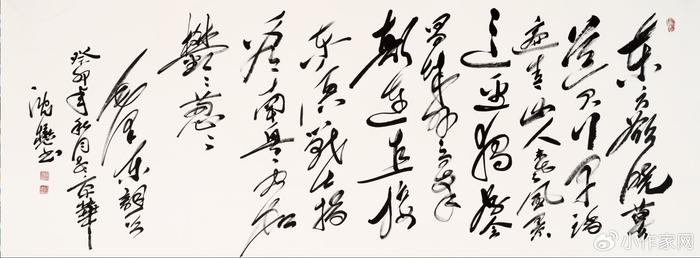 东方欲晓莫
道君行早踏
遍青山人未老风景
这边独好会
昌城外高峰
颠连直接
东溟战士指
看南粤更加
鬱々葱々
毛泽东词
癸卯年秋月于京华
沈书
小作家网